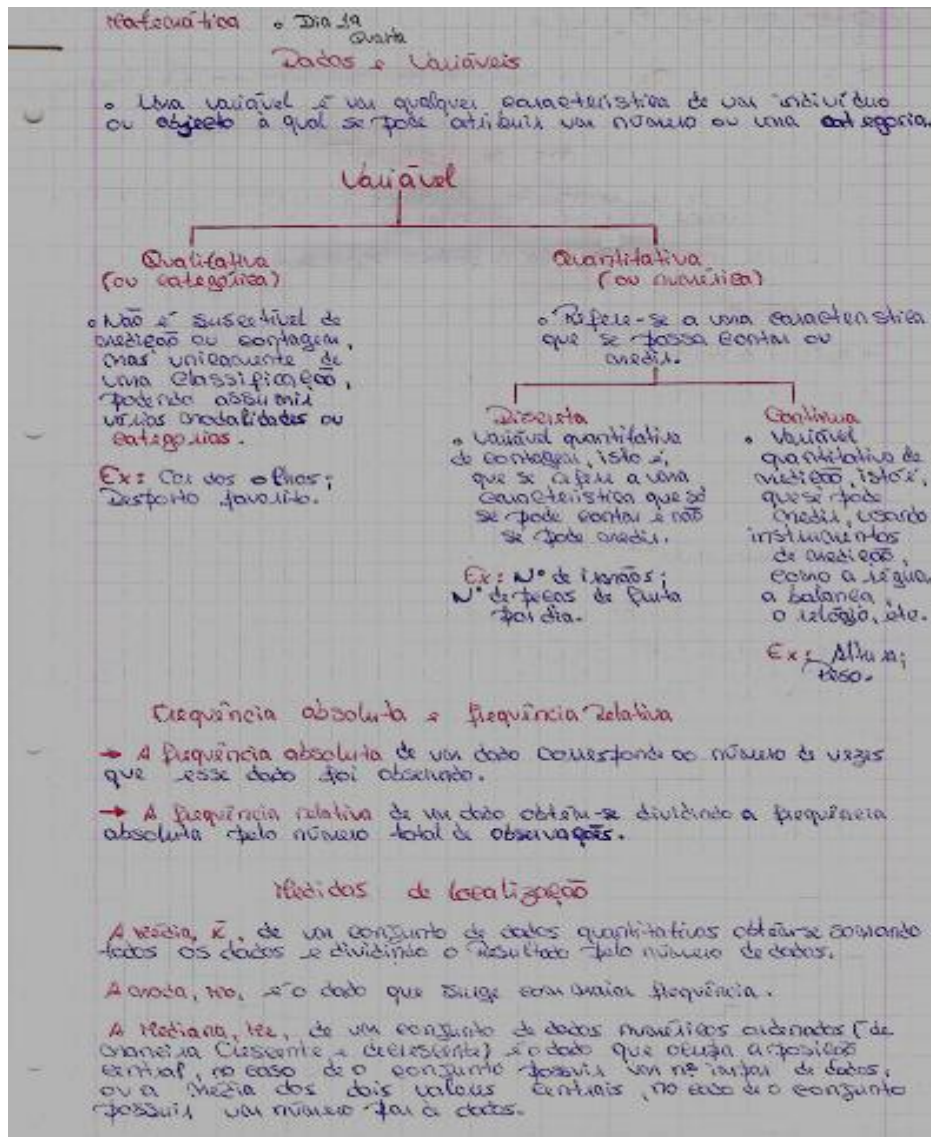 Matemática • Dia 19
Quarta
Dados e Variáveis
• Uma variável é um qualquer característica de um indivíduo
ou objecto à qual se pode atribuir um número ou uma categoria.
Variável
Qualitativa
(ou categórica)
• Não é suscetível de
medição ou contagem,
mas unicamente de
uma classificação,
podendo assumir
várias modalidades ou
categorias.
Ex: Cor dos olhos;
Desporto favorito.
Quantitativa
(ou numérica)
• Refere-se a uma característica
que se possa contar ou
medir.
Discreta
• Variável quantitativa
de contagem, isto é,
que se refere a uma
característica que só
se pode contar e não
se pode medir.
Ex: Nº de irmãos;
Nº de peças de fruta
por dia.
Contínua
• Variável
quantitativa de
medição, isto é,
que se pode
medir, usando
instrumentos
de medição,
como a régua,
a balança,
o relógio, etc.
Ex: Altura;
Peso.
Frequência absoluta e frequência relativa
→ A frequência absoluta de um dado corresponde ao número de vezes
que esse dado foi observado.
→ A frequência relativa de um dado obtém-se dividindo a frequência
absoluta pelo número total de observações.
Medidas de localização
A média, x̄, de um conjunto de dados quantitativos obtém-se somando
todos os dados e dividindo o resultado pelo número de dados.
A moda, Mo, é o dado que surge com maior frequência.
A Mediana, Me, de um conjunto de dados numéricos ordenados (de
maneira crescente e decrescente) é o dado que ocupa a posição
central, no caso de o conjunto possuir um nº ímpar de dados,
ou a média dos dois valores centrais, no caso de o conjunto
possuir um número par de dados.